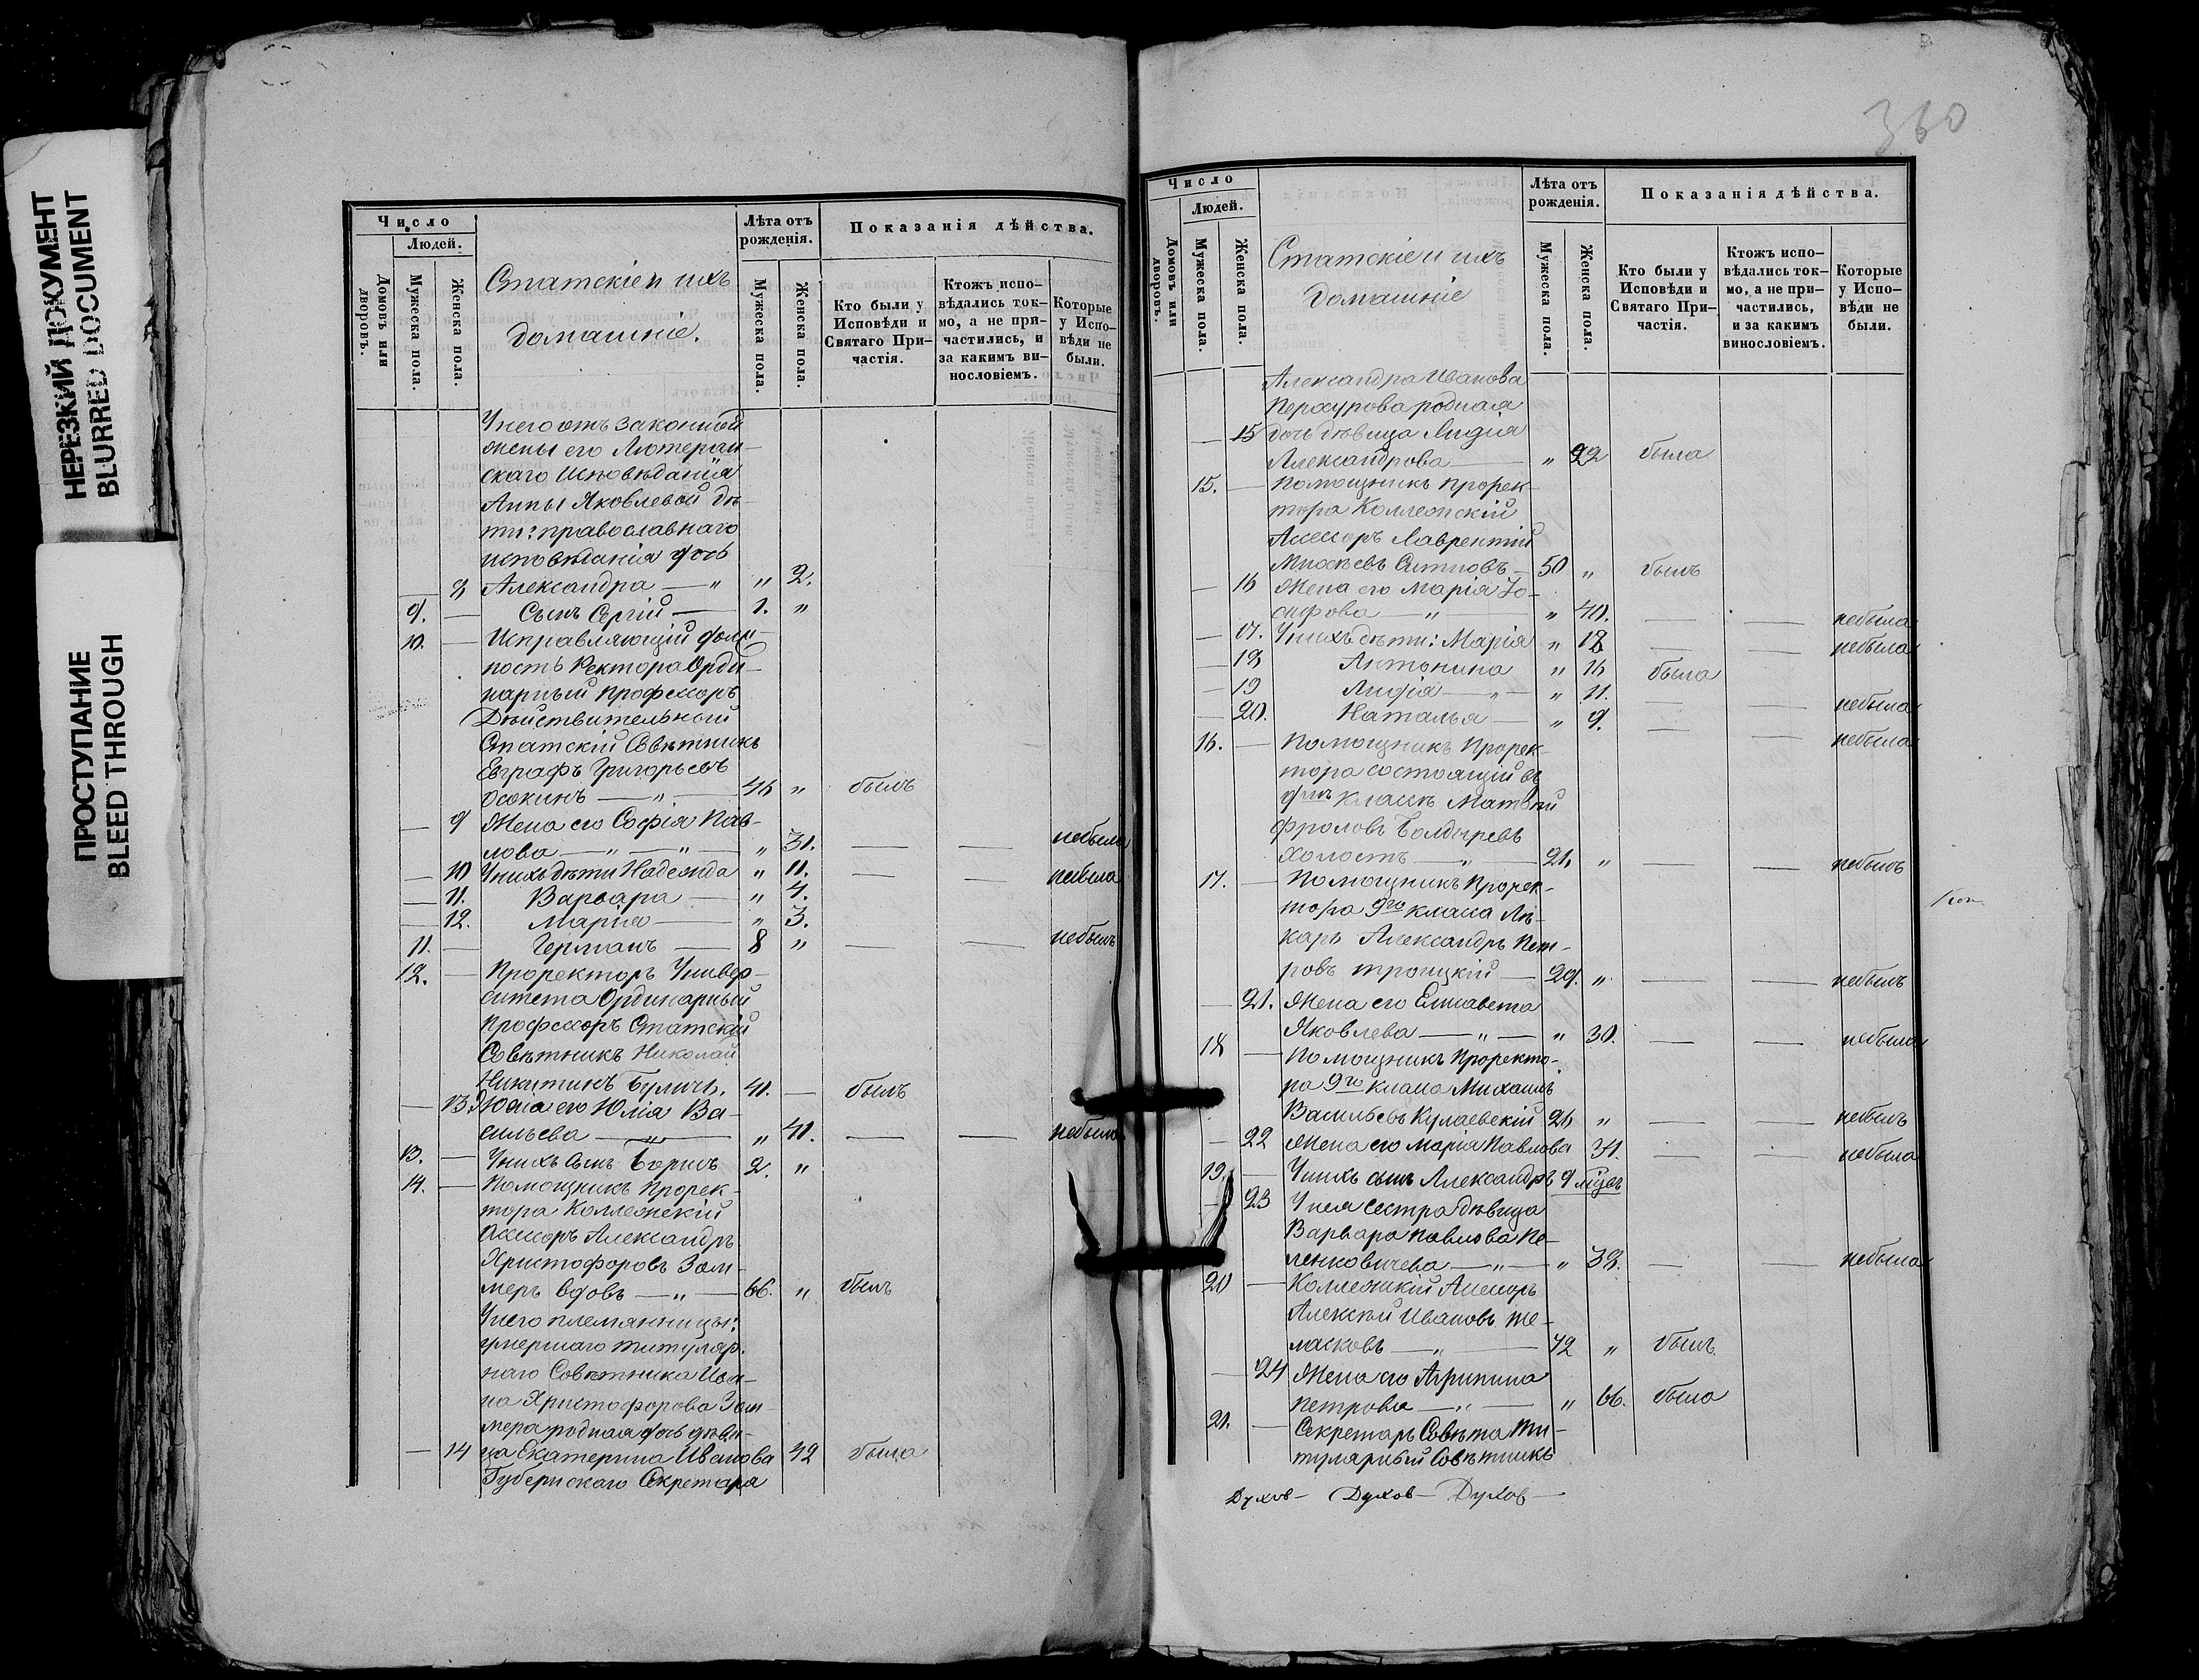 НЕРЕЗКИЙ ДОКУМЕНТ
BLURRED DOCUMENT
ПРОСТУПАНИЕ
BLEED THROUGH
Число
Людей.
Домовъ или дворовъ.
Мужеска пола.
Женска пола.
Статскіе и ихъ
домашніе.
Лѣта отъ рожденія.
Мужеска пола.
Женска пола.
Показанія дѣйства.
Кто были у Исповѣди и Святаго Причастія.
Ктожъ исповѣдались токмо, а не причастились, и за какимъ винословіемъ.
Которые у Исповѣди не были.
У него отъ законной
жены его Лютеран-
скаго Исповѣданія
Анны Яковлевой дѣ
ти: православнаго
исповѣданія дочь
— 8 Александра — „ „ 2.
9. — Сынъ Сергій — 1. „
10. — Исправляющій долж-
ность Ректора Орди-
нарный Профессоръ
Дѣйствительный
Статскій Совѣтникъ
Евграфъ Григорьевъ
Осокинъ — „ — 46 „ былъ
— 9 Жена его Софія Пав-
лова — „ — „ — „ 31. — — небыла
— 10 У нихъ дѣти Надежда „ 11. — — небыла
— 11. Варвара — „ 4.
— 12. Марія — „ 3.
11. — Германъ — 8 „ — — небылъ
12. — Проректоръ Универ-
ситета Ординарный
Профессоръ Статскій
Совѣтникъ Николай
Никитинъ Буличъ. 41. — былъ
— 13 Жена его Юлія Ва-
сильева — „ — „ 41. — — небыла
13. — У нихъ сынъ Борисъ 2. „
14. — Помощникъ Прорек-
тора Коллежскій
Асессоръ Александръ
Христофоровъ Зом-
меръ вдовъ — „ — 66. „ былъ
У него племянницы:
умершаго титуляр-
наго Совѣтника Ива-
на Христофорова Зом-
мера родная дочь дѣви-
— 14 ца Екатерина Иванова 42 была
Губернскаго Секретаря
360
Число
Людей.
Домовъ или дворовъ.
Мужеска пола.
Женска пола.
Статскіе и ихъ
домашніе
Лѣта отъ рожденія.
Мужеска пола.
Женска пола.
Показанія дѣйства.
Кто были у Исповѣди и Святаго Причастія.
Ктожъ исповѣдались токмо, а не причастились, и за какимъ винословіемъ.
Которые у Исповѣди не были.
Александра Иванова
Перхурова родная
— 15 дочь дѣвица Лидія
Александрова — „ 22 была
15. — Помощникъ Прорек-
тора Коллежскій
Асессоръ Лаврентій
Михѣевъ Ситновъ — 50 „ былъ
— 16 Жена его Марія Іо-
сифова — „ „ 40. — — небыла
— 17. У нихъ дѣти: Марія „ 18 — — небыла
— 18 Антонина „ 16 была
— 19 Лидія — „ — „ 11. — — небыла
— 20. Наталья — „ 9. — — небыла
16. — Помощникъ Прорек-
тора состоящій въ
классѣ Матвѣй
Фроловъ Болдыревъ
холостъ — „ — 21. „ — — небылъ
17. — Помощникъ Прорек-
тора 9го класса Лѣ-
карь Александръ Пет-
ровъ Троицкій — 29. „ — — небылъ
— 21. Жена его Елисавета
Яковлева — „ — „ 30. — — небыла
18 — Помощникъ Проректо-
ра 9го класса Михаилъ
Васильевъ Кулаевскій 26 „ — — небылъ
— 22 Жена его Марія Павлова 31. — — небыла
19. — У нихъ сынъ Александръ 9 мѣсяц.
— 23 У нея сестра дѣвица
Варвара Павлова По-
ленковичева — „ — „ 38. — — небыла
20 — Коллежскій Асессоръ
Алексѣй Ивановъ Те-
ласковъ — „ — 72 „ былъ.
— 24 Жена его Агрипина
Петрова — „ — „ 66. была
21. — Секретарь Совѣта Ти-
тулярный Совѣтникъ
Духов— Духов— Духов—